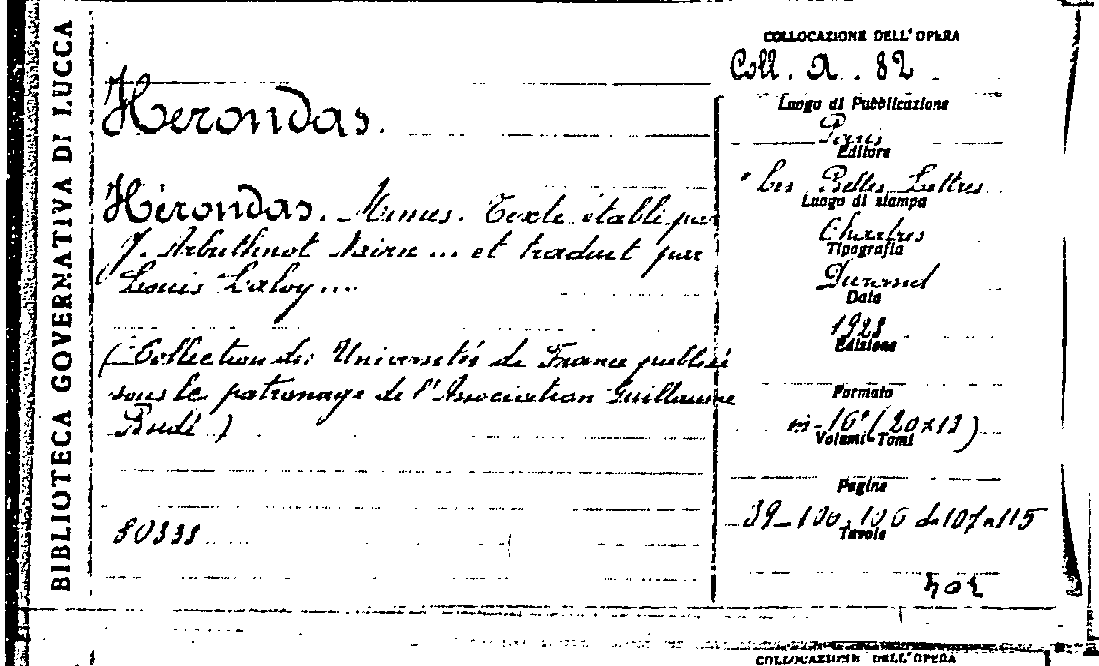 BIBLIOTECA GOVERNATIVA DI LUCCA
Herondas.
Hérondas. Mimes. Texte établi par
J. Arbuthnot Nairn ... et traduit par
Louis Laloy ...
(Collection des Universités de France publiée
sous le patronage de l'Association Guillaume
Budé)
COLLOCAZIONE DELL'OPERA
Coll. A. 82
Luogo di Pubblicazione
Paris
Editore
Les Belles Lettres
Luogo di stampa
Chartres
Tipografia
Durand
Data
1928
Edizione
Formato
in-16° (20x13)
Volumi-Tomi
Pagine
Tavole
COLLOCAZIONE DELL'OPERA